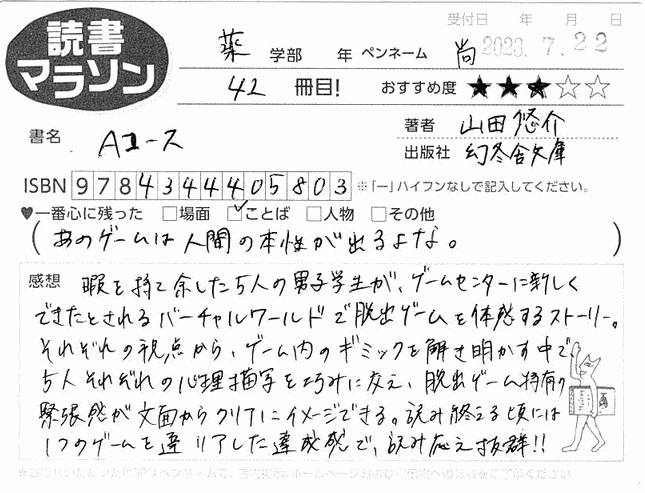 受付日 年 月 日
2023.7.22
読書
マラソン
薬 学部 年 ペンネーム 尚
42 冊目! おすすめ度 ★★★☆☆
書名 Aコース
著者 山田悠介
出版社 幻冬舎文庫
ISBN 9784344405803 ※「ー」ハイフンなしで記入してください。
♥一番心に残った □場面 ☑ことば □人物 □その他
(あのゲームは人間の本性が出るよな。)
感想 暇を持て余した5人の男子学生が、ゲームセンターに新しく
できたとされるバーチャルワールドで脱出ゲームを体感するストーリー。
それぞれの視点から、ゲーム内のギミックを解き明かす中で
5人それぞれの心理描写を巧みに交え、脱出ゲーム特有の
緊張感が文面からクリアにイメージできる。読み終える頃には
1つのゲームを通りアした達成感で、読み応え抜群!!